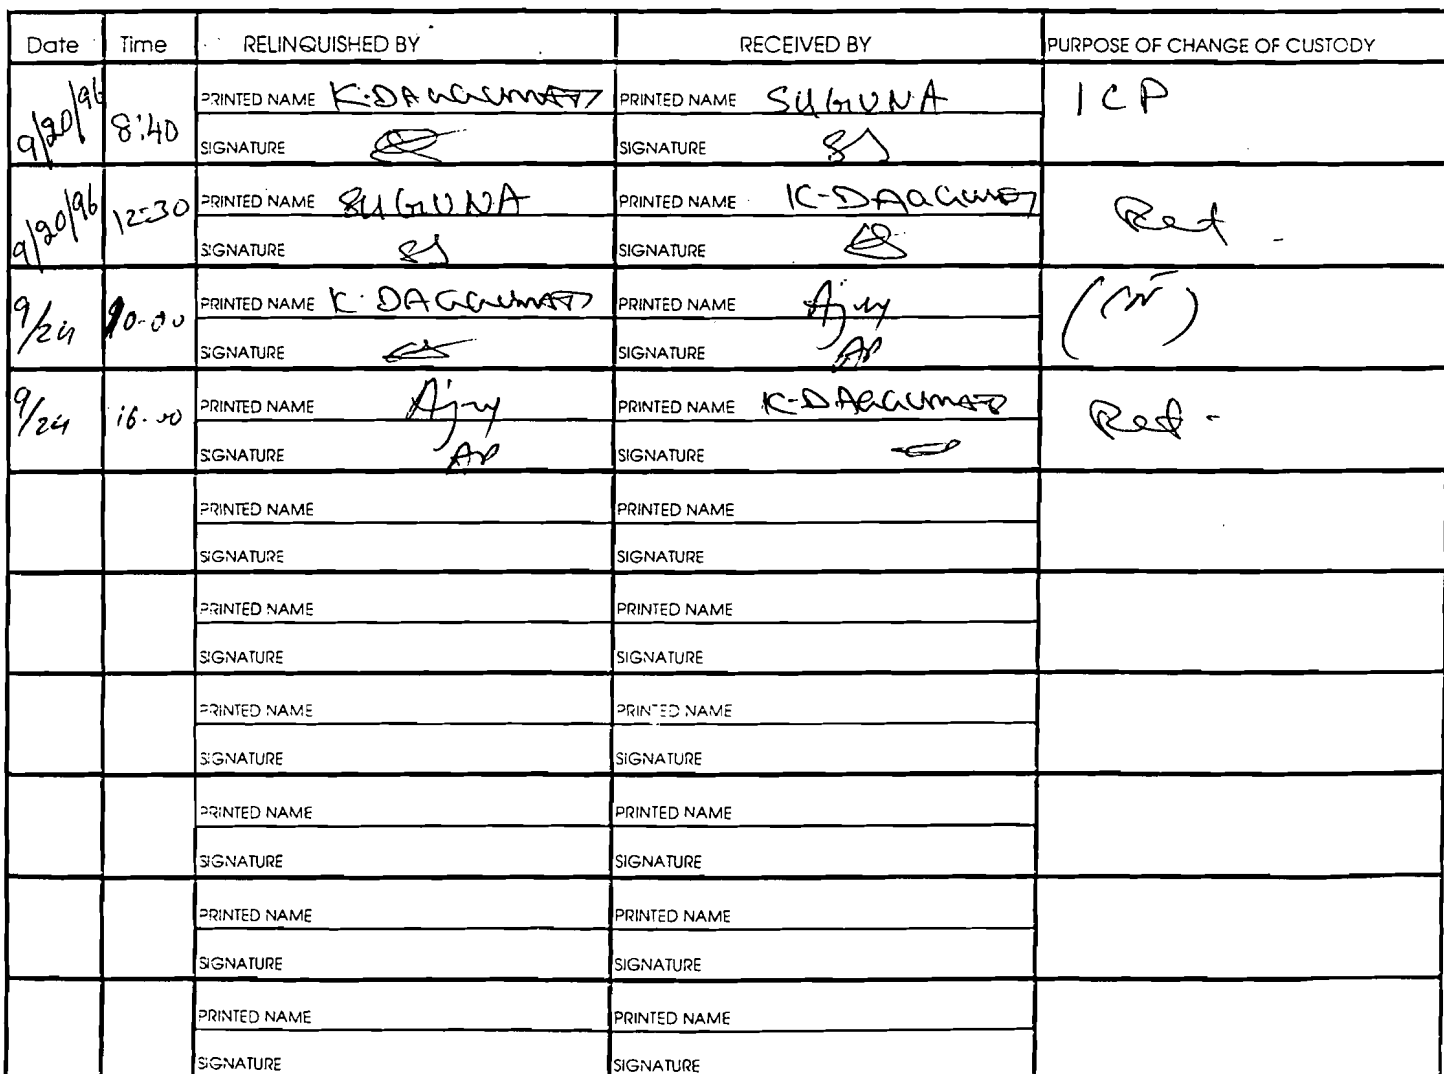 Date Time RELINQUISHED BY RECEIVED BY PURPOSE OF CHANGE OF CUSTODY
9/20/96 8:40 PRINTED NAME PRINTED NAME SUGUNA ICP
SIGNATURE SIGNATURE
9/20/96 12:30 PRINTED NAME SUGUNA PRINTED NAME Ret
SIGNATURE SIGNATURE
9/24 10-00 PRINTED NAME K. DAGGUMATI PRINTED NAME Ajay
SIGNATURE SIGNATURE
9/24 16-00 PRINTED NAME Ajay PRINTED NAME K-DAGGUMATI Ret-
SIGNATURE SIGNATURE
PRINTED NAME PRINTED NAME
SIGNATURE SIGNATURE
PRINTED NAME PRINTED NAME
SIGNATURE SIGNATURE
PRINTED NAME PRINTED NAME
SIGNATURE SIGNATURE
PRINTED NAME PRINTED NAME
SIGNATURE SIGNATURE
PRINTED NAME PRINTED NAME
SIGNATURE SIGNATURE
PRINTED NAME PRINTED NAME
SIGNATURE SIGNATURE